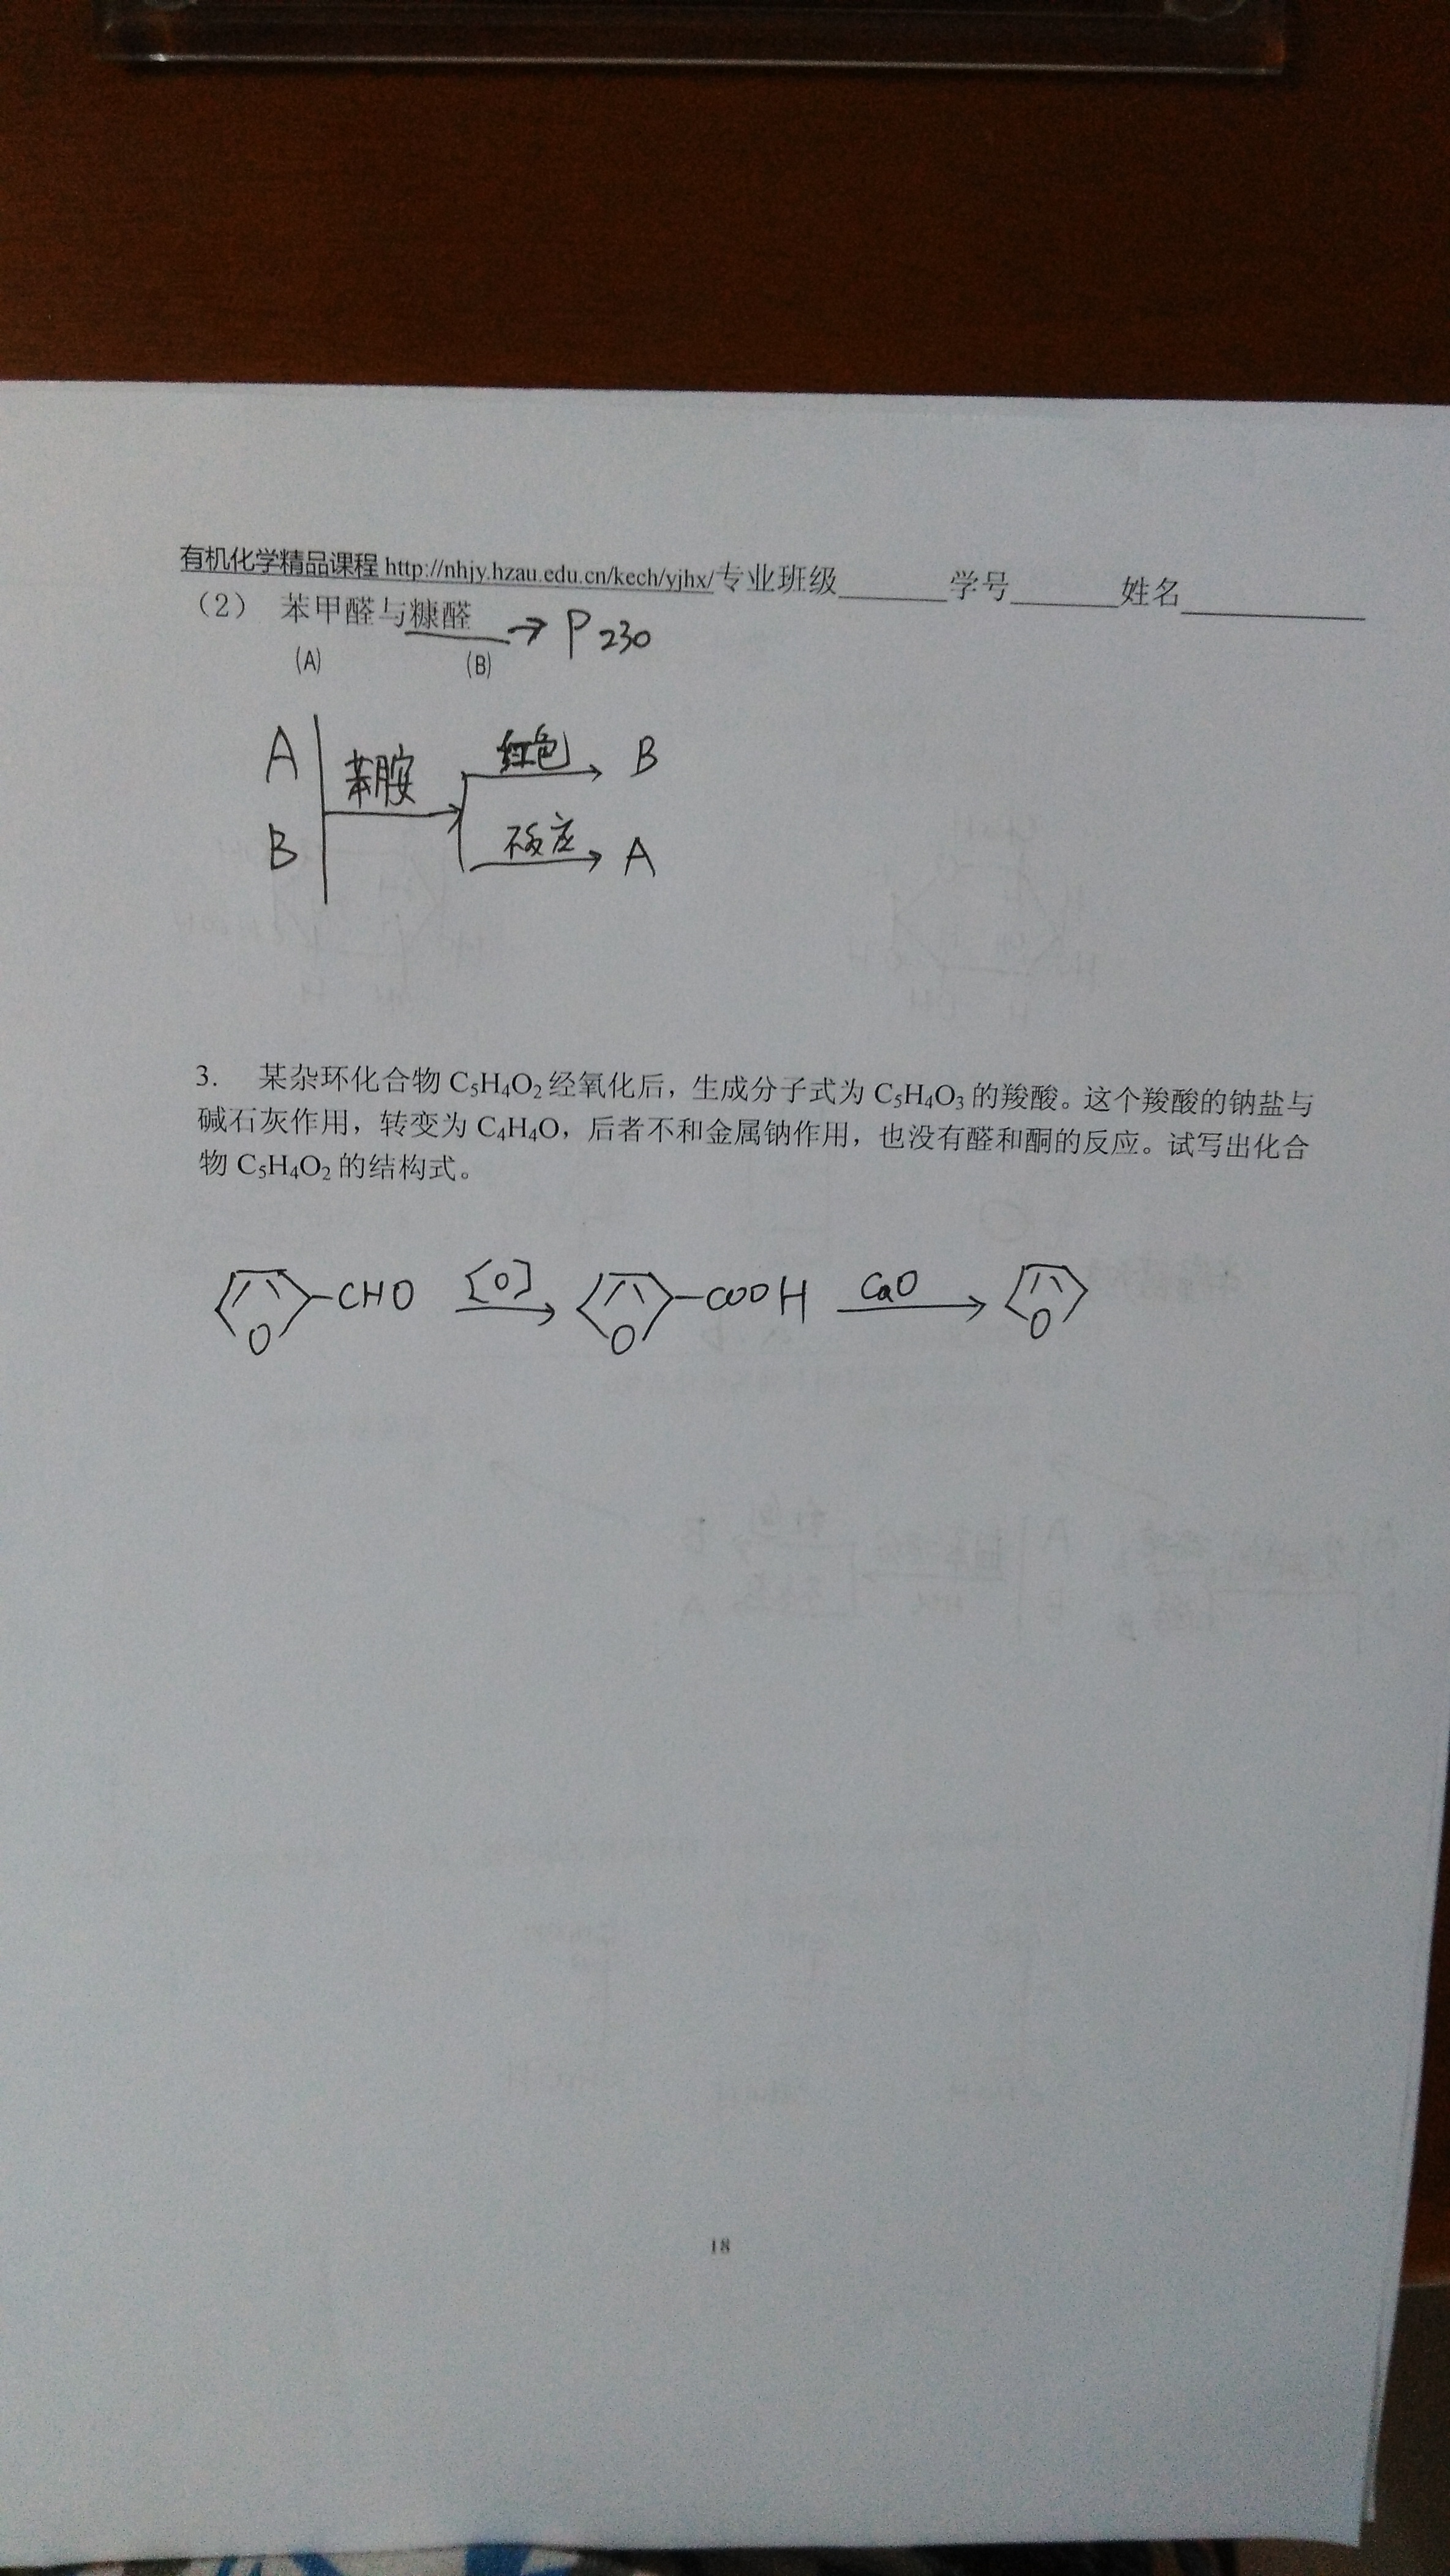 有机化学精品课程 http://nhjy.hzau.edu.cn/kech/yjhx/ 专业班级______学号______姓名__________
（2） 苯甲醛与糠醛 → P 230
(A) (B)
A 苯胺 红色 B
B 不反应 A
3. 某杂环化合物 C₅H₄O₂ 经氧化后，生成分子式为 C₅H₄O₃ 的羧酸。这个羧酸的钠盐与
碱石灰作用，转变为 C₄H₄O，后者不和金属钠作用，也没有醛和酮的反应。试写出化合
物 C₅H₄O₂ 的结构式。
O -CHO [O] O -COOH CaO O
18